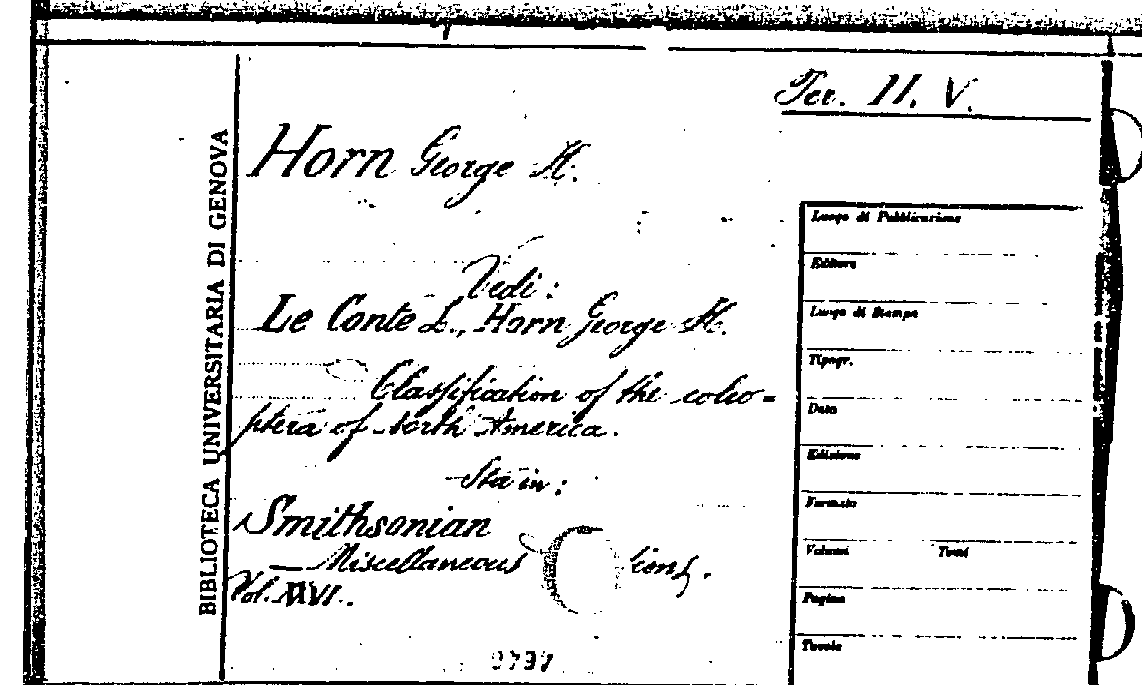 Ter. II. V.
BIBLIOTECA UNIVERSITARIA DI GENOVA
Horn George H.
Vedi:
Le Conte L., Horn George H.
Classification of the coleo=
ptera of North America.
Sta in:
Smithsonian
— Miscellaneous tions.
Vol. XXVI.
9797
Luogo di Pubblicazione
Editore
Luogo di Stampa
Tipogr.
Data
Edizione
Formato
Volumi Tomi
Pagine
Tavole